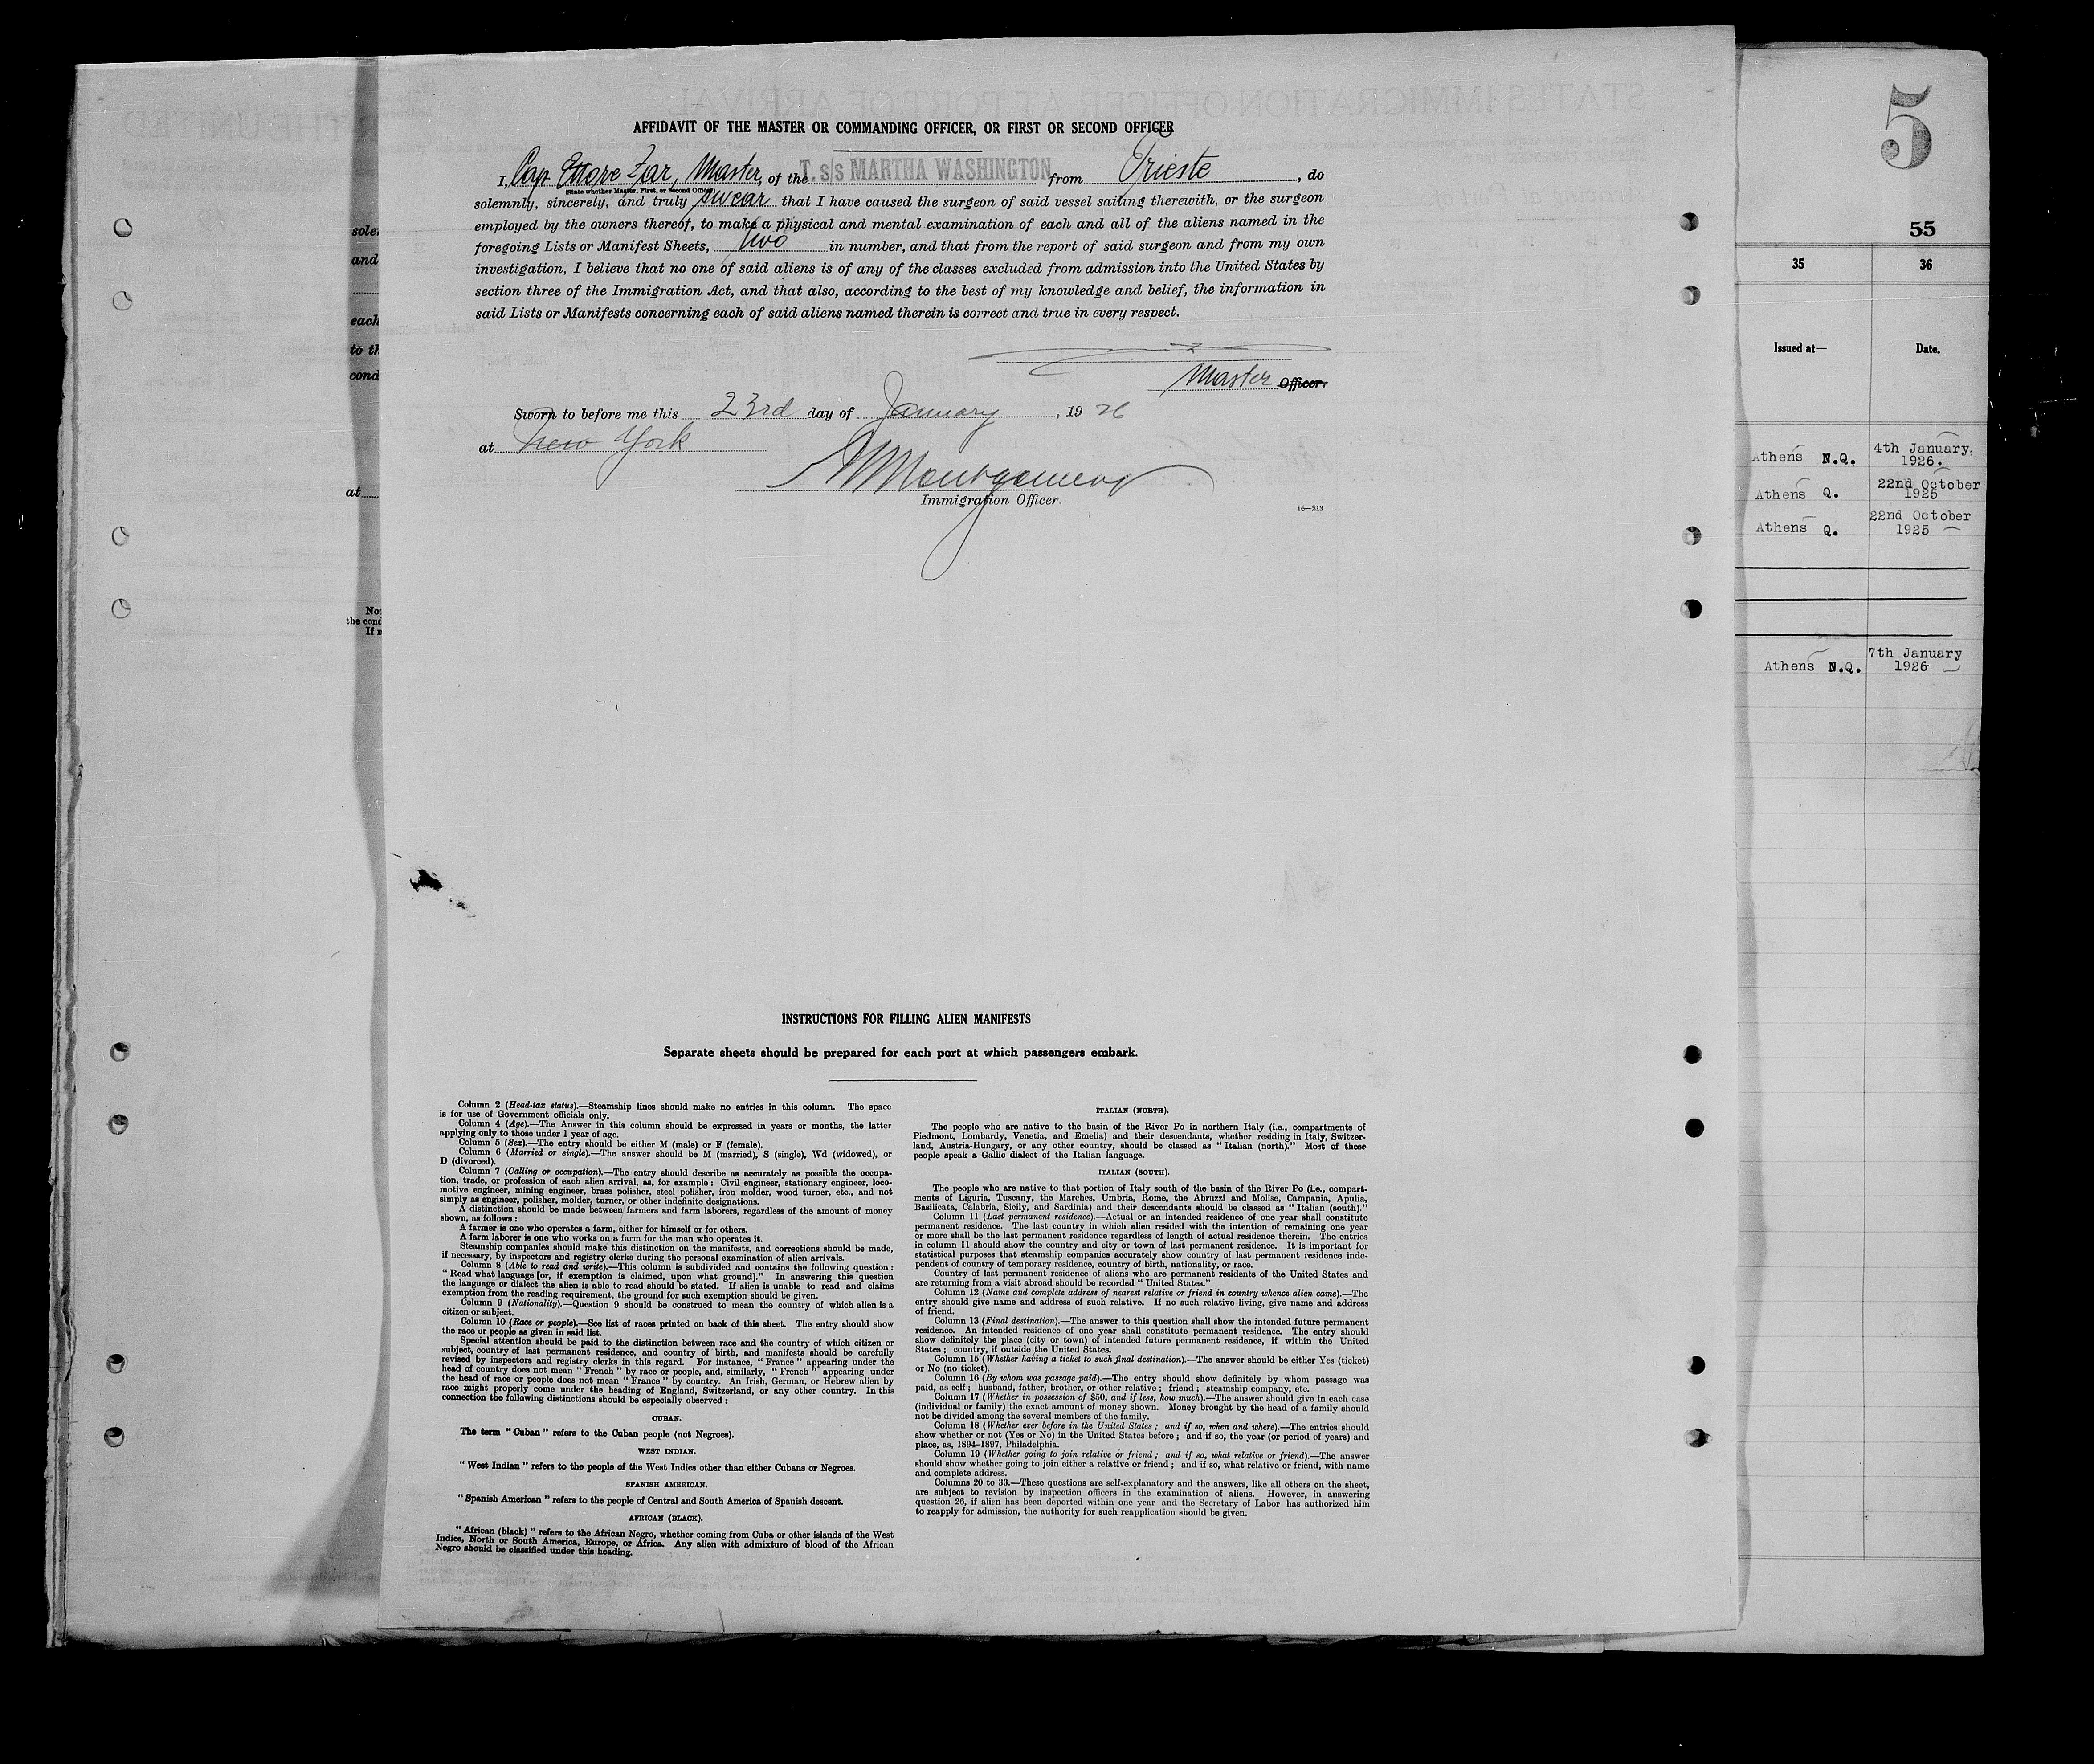 AFFIDAVIT OF THE MASTER OR COMMANDING OFFICER, OR FIRST OR SECOND OFFICER
I, Cap. Ettore Zar, Master, of the T. s/s MARTHA WASHINGTON from Trieste, do
(State whether Master, First, or Second Officer)
solemnly, sincerely, and truly swear that I have caused the surgeon of said vessel sailing therewith, or the surgeon
employed by the owners thereof, to make a physical and mental examination of each and all of the aliens named in the
foregoing Lists or Manifest Sheets, two in number, and that from the report of said surgeon and from my own
investigation, I believe that no one of said aliens is of any of the classes excluded from admission into the United States by
section three of the Immigration Act, and that also, according to the best of my knowledge and belief, the information in
said Lists or Manifests concerning each of said aliens named therein is correct and true in every respect.
Master Officer.
Sworn to before me this 23rd day of January, 1926
at New York
Montgomery
Immigration Officer.
16—213
INSTRUCTIONS FOR FILLING ALIEN MANIFESTS
Separate sheets should be prepared for each port at which passengers embark.
Column 2 (Head-tax status).—Steamship lines should make no entries in this column. The space
is for use of Government officials only.
Column 4 (Age).—The Answer in this column should be expressed in years or months, the latter
applying only to those under 1 year of age.
Column 5 (Sex).—The entry should be either M (male) or F (female).
Column 6 (Married or single).—The answer should be M (married), S (single), Wd (widowed), or
D (divorced).
Column 7 (Calling or occupation).—The entry should describe as accurately as possible the occupa-
tion, trade, or profession of each alien arrival, as, for example: Civil engineer, stationary engineer, loco-
motive engineer, mining engineer, brass polisher, steel polisher, iron molder, wood turner, etc., and not
simply as engineer, polisher, molder, turner, or other indefinite designations.
A distinction should be made between farmers and farm laborers, regardless of the amount of money
shown, as follows:
A farmer is one who operates a farm, either for himself or for others.
A farm laborer is one who works on a farm for the man who operates it.
Steamship companies should make this distinction on the manifests, and corrections should be made,
if necessary, by inspectors and registry clerks during the personal examination of alien arrivals.
Column 8 (Able to read and write).—This column is subdivided and contains the following question:
"Read what language [or, if exemption is claimed, upon what ground]." In answering this question
the language or dialect the alien is able to read should be stated. If alien is unable to read and claims
exemption from the reading requirement, the ground for such exemption should be given.
Column 9 (Nationality).—Question 9 should be construed to mean the country of which alien is a
citizen or subject.
Column 10 (Race or people).—See list of races printed on back of this sheet. The entry should show
the race or people as given in said list.
Special attention should be paid to the distinction between race and the country of which citizen or
subject, country of last permanent residence, and country of birth, and manifests should be carefully
revised by inspectors and registry clerks in this regard. For instance, "France" appearing under the
head of country does not mean "French" by race or people, and, similarly, "French" appearing under
the head of race or people does not mean "France" by country. An Irish, German, or Hebrew alien by
race might properly come under the heading of England, Switzerland, or any other country. In this
connection the following distinctions should be especially observed:
CUBAN.
The term "Cuban" refers to the Cuban people (not Negroes).
WEST INDIAN.
"West Indian" refers to the people of the West Indies other than either Cubans or Negroes.
SPANISH AMERICAN.
"Spanish American" refers to the people of Central and South America of Spanish descent.
AFRICAN (BLACK).
"African (black)" refers to the African Negro, whether coming from Cuba or other islands of the West
Indies, North or South America, Europe, or Africa. Any alien with admixture of blood of the African
Negro should be classified under this heading.
ITALIAN (NORTH).
The people who are native to the basin of the River Po in northern Italy (i.e., compartments of
Piedmont, Lombardy, Venetia, and Emelia) and their descendants, whether residing in Italy, Switzer-
land, Austria-Hungary, or any other country, should be classed as "Italian (north)." Most of these
people speak a Gallic dialect of the Italian language.
ITALIAN (SOUTH).
The people who are native to that portion of Italy south of the basin of the River Po (i.e., compart-
ments of Liguria, Tuscany, the Marches, Umbria, Rome, the Abruzzi and Molise, Campania, Apulia,
Basilicata, Calabria, Sicily, and Sardinia) and their descendants should be classed as "Italian (south)."
Column 11 (Last permanent residence).—Actual or an intended residence of one year shall constitute
permanent residence. The last country in which alien resided with the intention of remaining one year
or more shall be the last permanent residence regardless of length of actual residence therein. The entries
in column 11 should show the country and city or town of last permanent residence. It is important for
statistical purposes that steamship companies accurately show country of last permanent residence inde-
pendent of country of temporary residence, country of birth, nationality, or race.
Country of last permanent residence of aliens who are permanent residents of the United States and
are returning from a visit abroad should be recorded "United States."
Column 12 (Name and complete address of nearest relative or friend in country whence alien came).—The
entry should give name and address of such relative. If no such relative living, give name and address
of friend.
Column 13 (Final destination).—The answer to this question shall show the intended future permanent
residence. An intended residence of one year shall constitute permanent residence. The entry should
show definitely the place (city or town) of intended future permanent residence, if within the United
States; country, if outside the United States.
Column 15 (Whether having a ticket to such final destination).—The answer should be either Yes (ticket)
or No (no ticket).
Column 16 (By whom was passage paid).—The entry should show definitely by whom passage was
paid, as self; husband, father, brother, or other relative; friend; steamship company, etc.
Column 17 (Whether in possession of $50, and if less, how much).—The answer should give in each case
(individual or family) the exact amount of money shown. Money brought by the head of a family should
not be divided among the several members of the family.
Column 18 (Whether ever before in the United States; and if so, when and where).—The entries should
show whether or not (Yes or No) in the United States before; and if so, the year (or period of years) and
place, as, 1894-1897, Philadelphia.
Column 19 (Whether going to join relative or friend; and if so, what relative or friend).—The answer
should show whether going to join either a relative or friend; and if so, what relative or friend, with name
and complete address.
Columns 20 to 33.—These questions are self-explanatory and the answers, like all others on the sheet,
are subject to revision by inspection officers in the examination of aliens. However, in answering
question 26, if alien has been deported within one year and the Secretary of Labor has authorized him
to reapply for admission, the authority for such reapplication should be given.
5
55
35 36
Issued at— Date.
Athens N.Q. 4th January
1926.
Athens Q. 22nd October
1925
Athens Q. 22nd October
1925
Athens N.Q. 7th January
1926
and
each
to th
cond
at